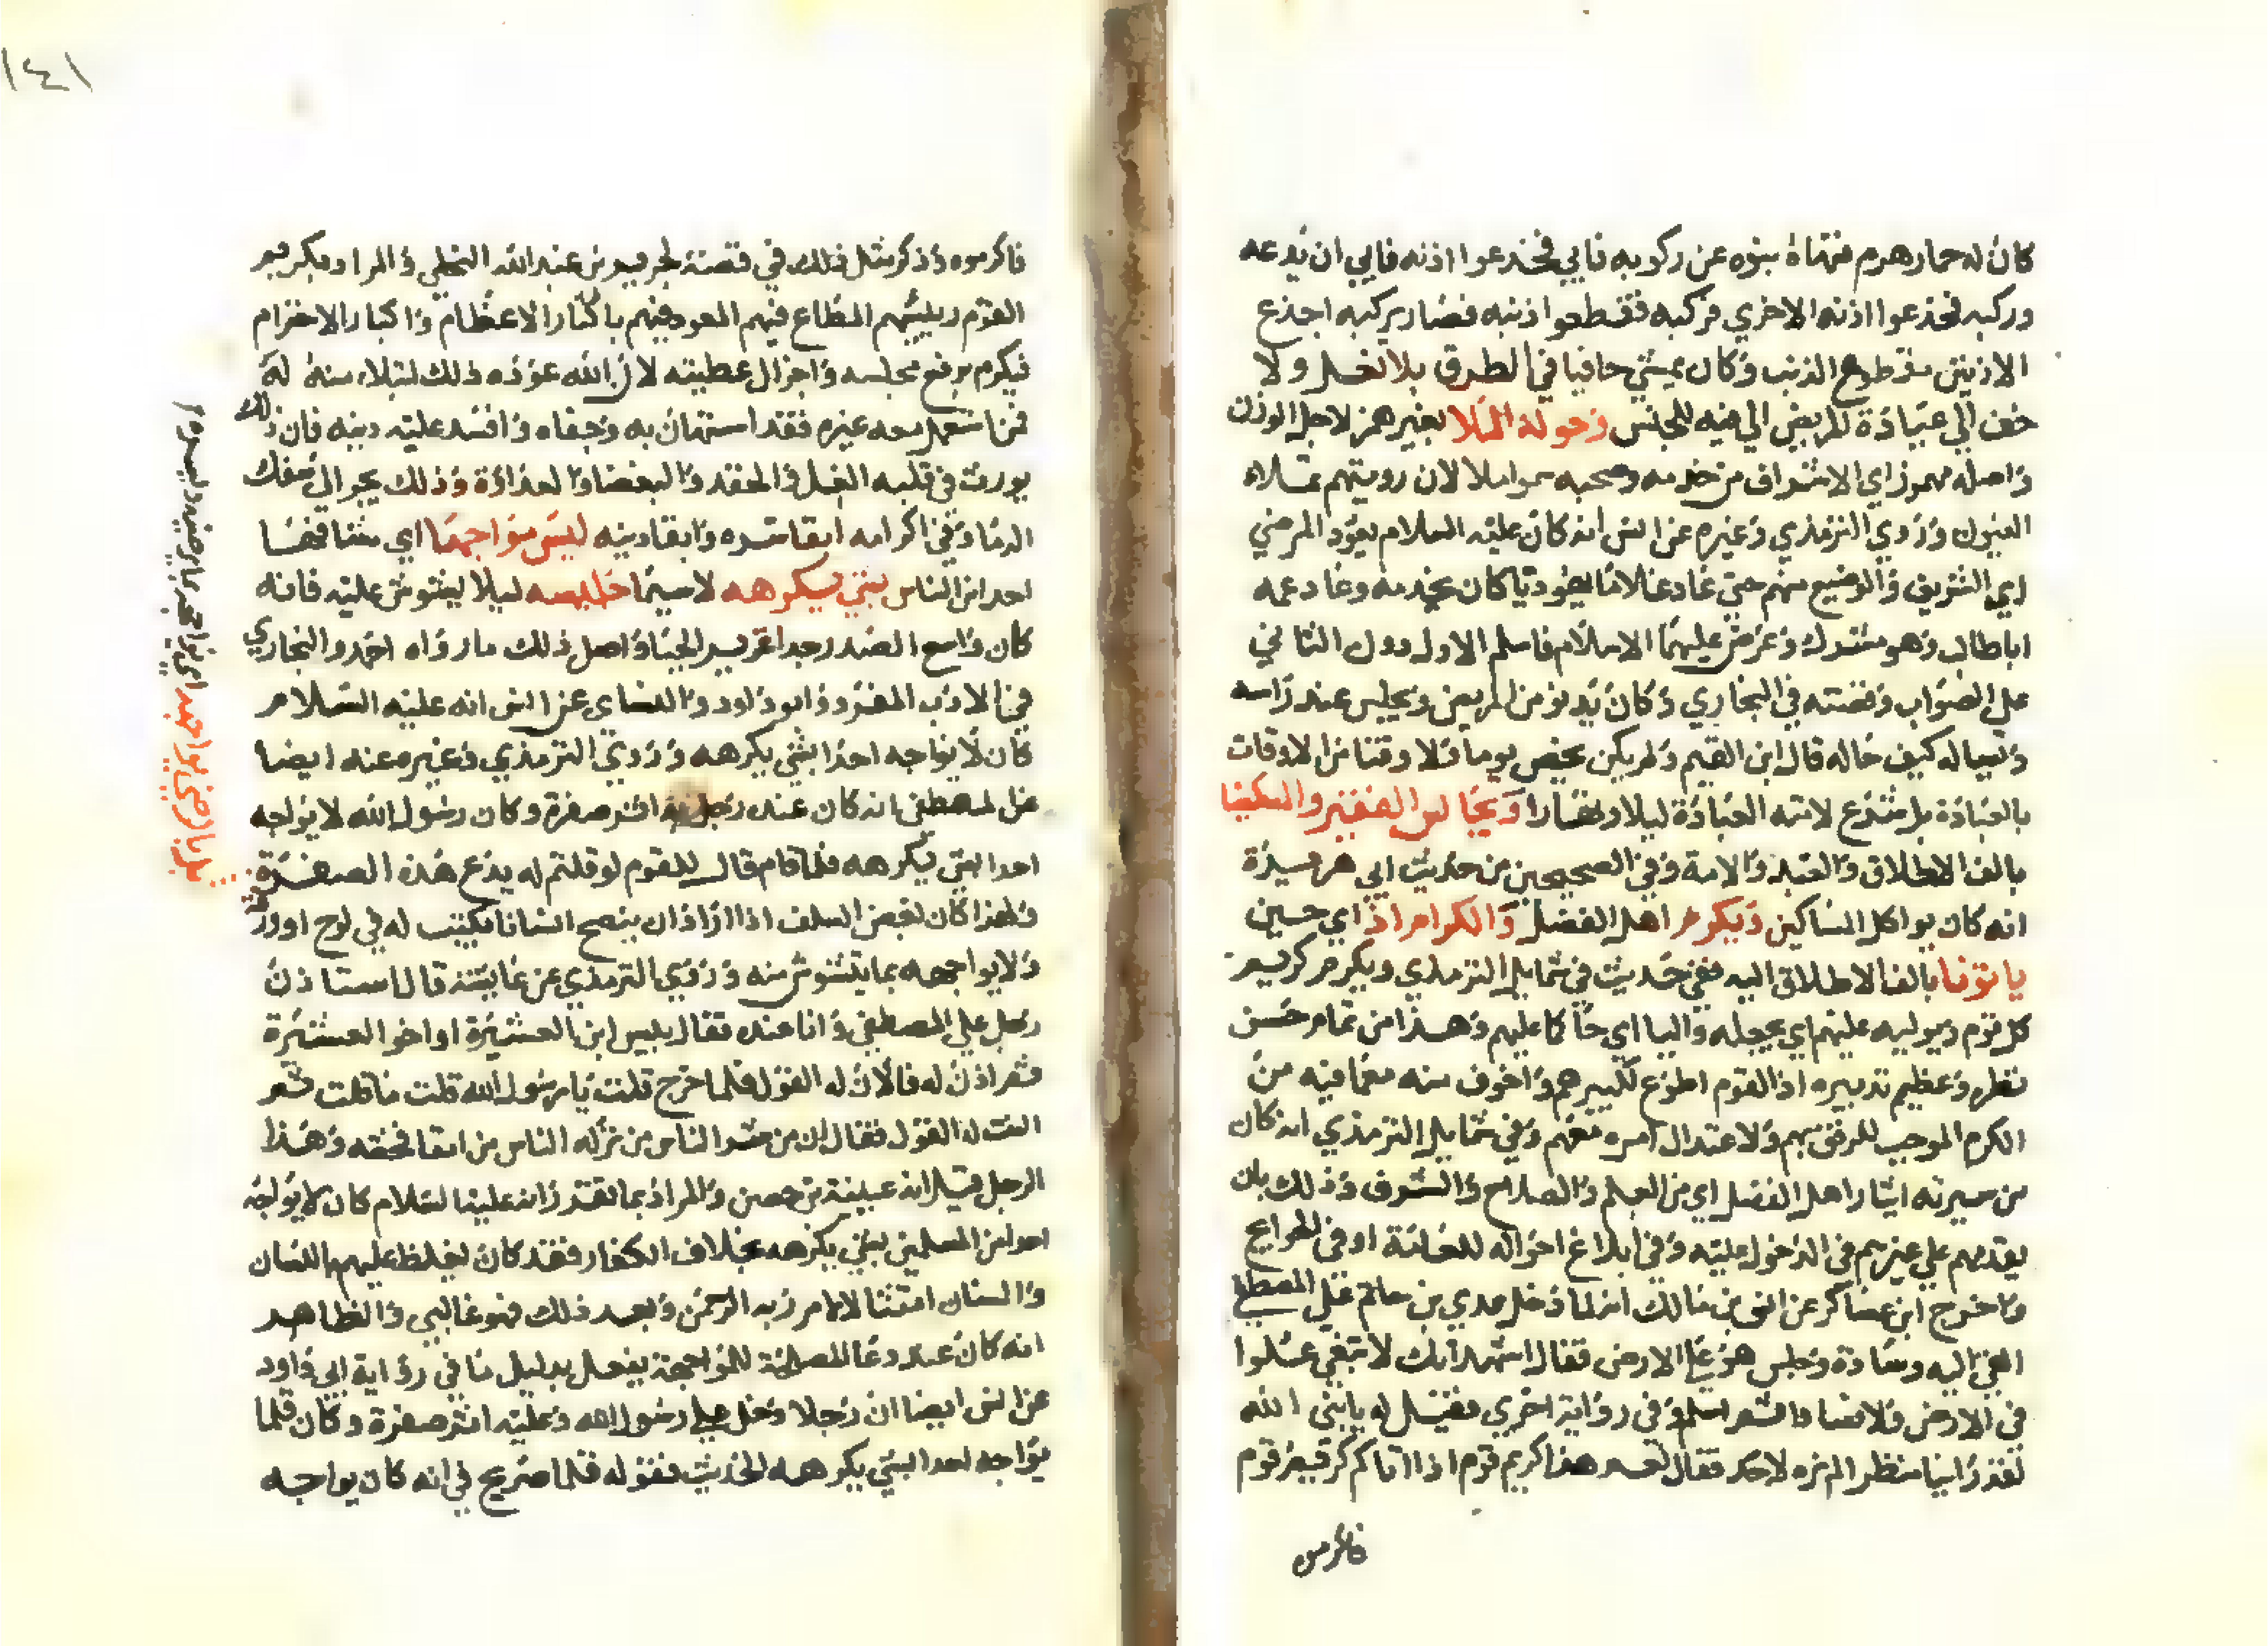 كان له حمار هرم فنهاه بنوه عن ركوبه فابي فجذعوا اذنه فابي ان يدعه
وركبه فجذعوا اذنه الاخري فركبه فقطعوا ذنبه فصار يركبه اجذع
الاذنين مقطوع الذنب وكان يمشي حافيا في الطرق بلا نعل ولا
خف الي عيادة المريض الي فيه المجلس وحوله الملا بغير همز لاجل الوزن
واصله مهموز اي الاشراف من خدمه وصحبه سموا ملا لان رويتهم تملاء
العيون وروي الترمذي وغيره عن انس انه كان عليه السلام يعود المرضي
اي الشريف والوضيع منهم حتي عاد غلاما يهوديا كان يخدمه وعاد عمه
ابا طالب وهو مشرك وعرض عليهما الاسلام فاسلم الاول دون الثاني
علي الصواب وقصته في البخاري وكان يدنو من المريض ويجلس عند راسه
ويساله كيف حاله قال ابن القيم ولم يكن يخص يوما ولا وقتا من الاوقات
بالعيادة بل شرع لامته العيادة ليلا ونهارا ويجالس الفقير والمسكينا
بالف الاطلاق والعبد والامة وفي الصحيحين من حديث ابي هريرة
انه كان يواكل المساكين ويكرم اهل الفضل والكرام اذ اي حين
ياتونا بالف الاطلاق اليه ففي حديث في شمايل الترمذي ويكرم كريم
كل قوم ويوليه عليهم اي يجعله واليا اي حاكما عليهم وهذا من تمام حسن
نظره وعظيم تدبيره اذ القوم اطوع لكبيرهم واخوف منه مع ما فيه من
الكرم الموجب للرفق بهم ولاعتدال امره معهم وفي شمايل الترمذي انه كان
من سيرته ايثار اهل الفضل اي من العلم والصلاح والشرف وذلك بان
يقدمهم علي غيرهم في الدخول عليه وفي ابلاغ احواله للعامة او في الحوايج
واخرج ابن عساكر عن انس بن مالك انه لما دخل عدي بن حاتم علي المصطفي
القي اليه وسادة وجلس هو علي الارض فقال اشهد انك لا تبغي علوا
في الارض ولا فسادا ثم اسلم وفي رواية اخري فقيل له يا نبي الله
لقد راينا منظرا لم نره لاحد فقال نعم هذا كريم قوم اذا اتاكم كريم قوم
فاكرموه
١٤١
فاكرموه وذكر مثل ذلك في قصة لجرير بن عبد الله البجلي والمراد بكريم
القوم رييسهم المطاع فيهم المعود فيهم باكثار الاعظام واكبار الاحترام
فيكرم برفع مجلسه واجزال عطيته لان الله عوده ذلك ابتلاء منه له
فمن استعمل معه غيره فقد استهان به وجفاه وافسد عليه دينه فان ذلك
يورث في قلبه الغل والحقد والبغضا والعداوة وذلك يجر الي سفك
الدما وفي اكرامه اتقا شره وابقا دينه ليس مواجها اي مشافها
احدا من الناس بشي يكرهه لا سيما جليسه ليلا يشوش عليه فانه
كان واسع الصدر جدا غزير الحيا واصل ذلك ما رواه احمد والبخاري
في الادب المفرد وابو داود والنساي عن انس انه عليه السلام
كان لا يواجه احدا بشي يكرهه وروي الترمذي وغيره عنه ايضا
عن المصطفي انه كان عنده رجل به اثر صفرة وكان رسول الله لا يواجه
احدا بشي يكرهه فلما قام قال للقوم لو قلتم له يدع هذه الصفرة
ولهذا كان بعض السلف اذا اراد ان ينصح انسانا يكتب له في لوح او ورقة
ولا يواجهه بما يتشوش منه وروي الترمذي عن عايشة قال استاذن
رجل علي المصطفي وانا عنده فقال بيس ابن العشيرة او اخو العشيرة
ثم اذن له فالان له القول فلما خرج قلت يا رسول الله قلت ما قلت ثم
النت له القول فقال ان من شر الناس من تركه الناس من اتقا فحشه وهذا
الرجل قيل انه عيينة بن حصن والمراد بما تقدر انه عليه السلام كان لا يواجه
احدا من المسلمين بشي يكرهه بخلاف الكفار فقد كان يغلظ عليهم باللسان
والسنان امتثالا لامر ربه الرحمن وبعد ذلك فهو غالبي والظاهر
انه كان عند دعا المصلحة للمواجهة يفعل بدليل ما في رواية ابي داود
عن انس ايضا ان رجلا دخل علي رسول الله وعليه اثر صفرة وكان قلما
يواجه احدا بشي يكرهه الحديث فقوله قلما صريح في انه كان يواجه